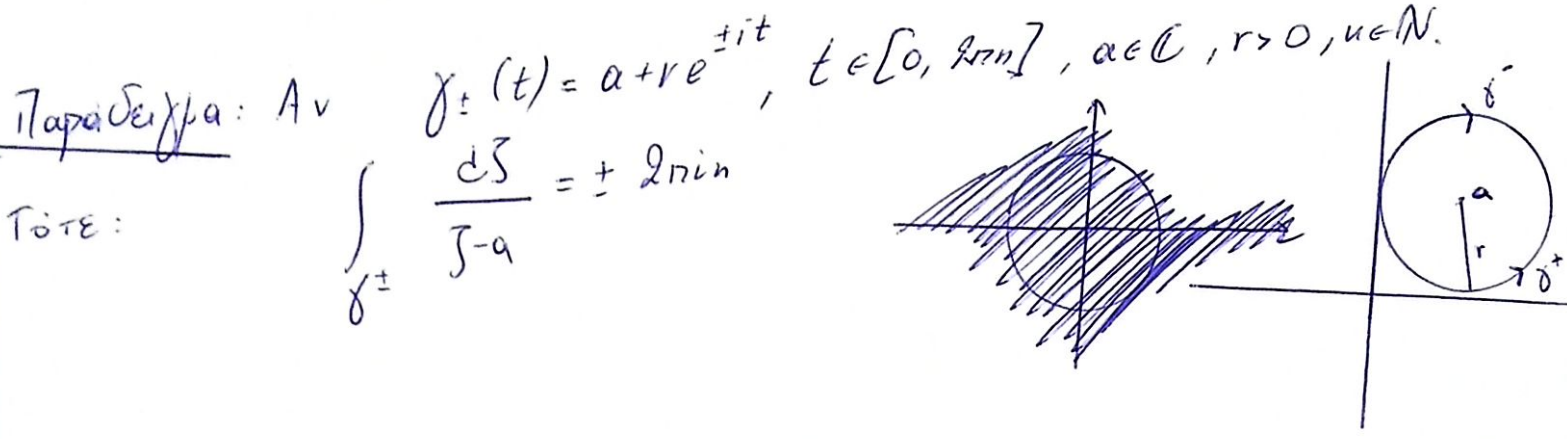 Παράδειγμα: Αν γ±(t) = a + re^{±it}, t ∈ [0, 2πn], a ∈ ℂ, r > 0, n ∈ ℕ.
Τότε: ∫_{γ±} dζ/(ζ-a) = ± 2πin
γ-
a
r
γ+